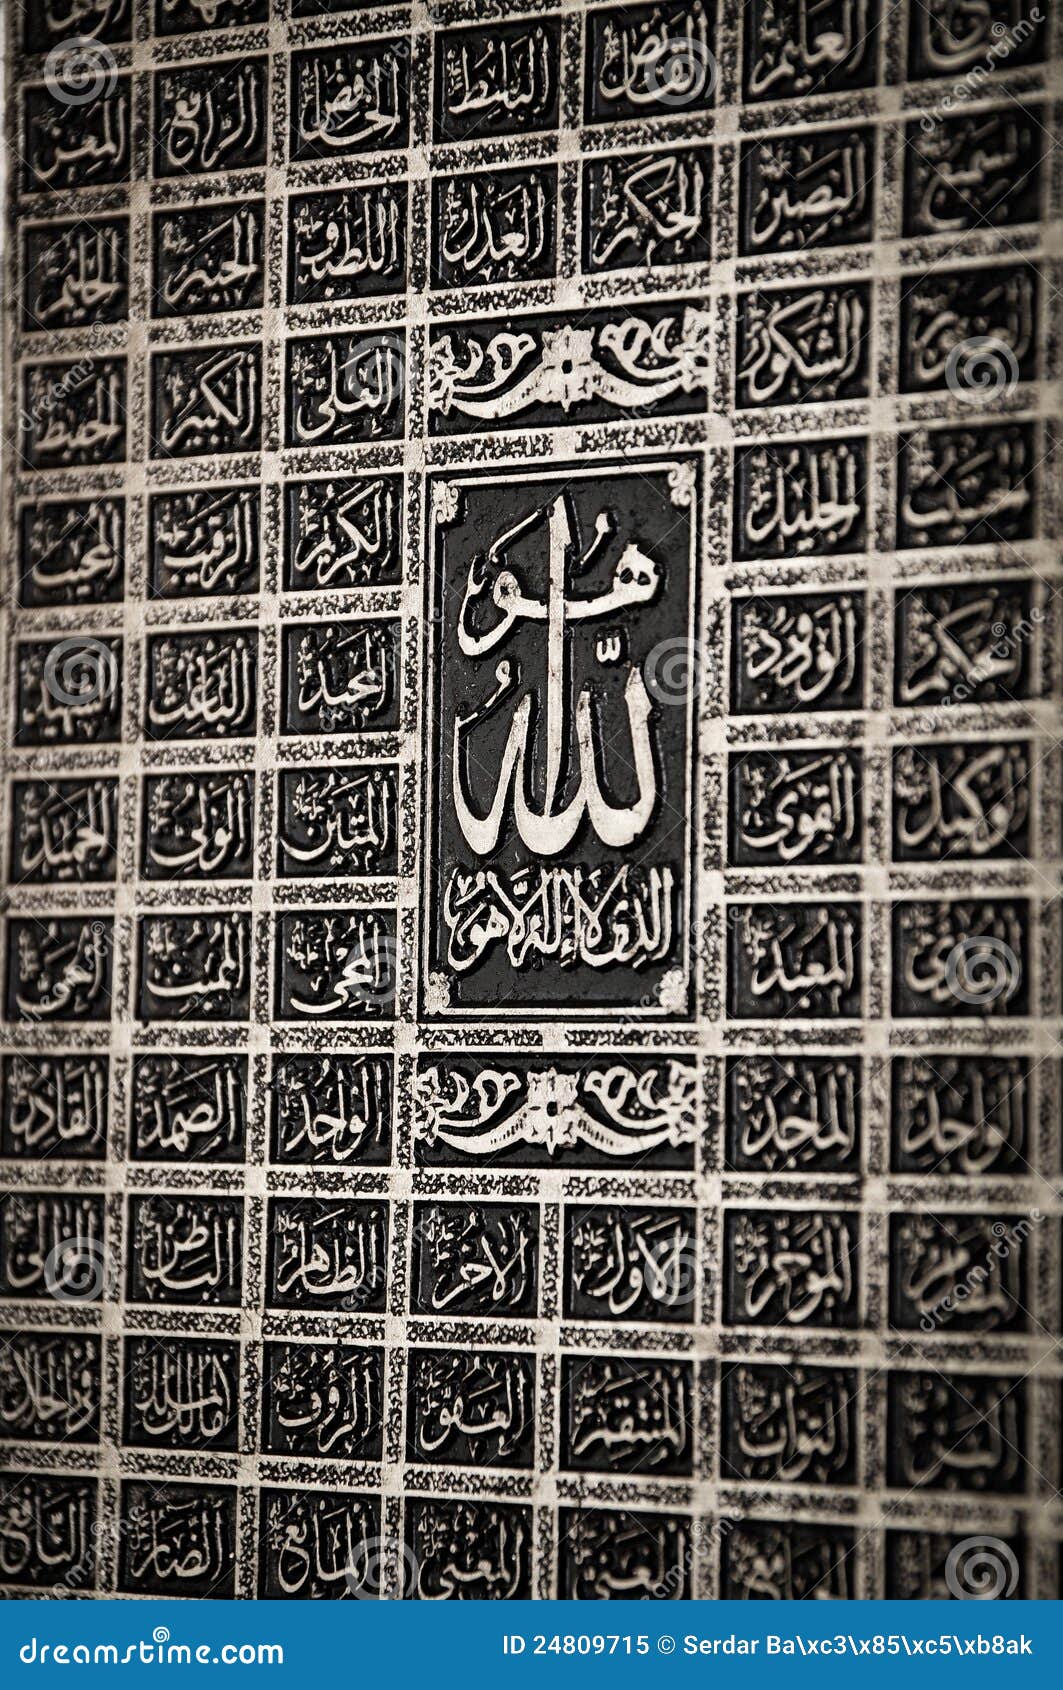 العليم القابض الباسط الخافض الرافع المعز
البصير الحكم العدل اللطيف الخبير الحليم
الشكور العلي الكبير الحفيظ
الجليل الكريم الرقيب المجيب
حكيم الودود المجيد الباعث الشهيد
الوكيل القوي المتين الولي الحميد
المعيد المحيي المميت الحي
الواحد الماجد الواحد الصمد القادر
المؤخر الأول الآخر الظاهر الباطن الوالي
التواب المنتقم العفو الرؤف مالك الملك ذو الجلال
المغني المانع الضار النافع
هو الله
الذي لا إله إلا هو
dreamstime.com
ID 24809715 © Serdar Ba\xc3\x85\xc5\xb8ak